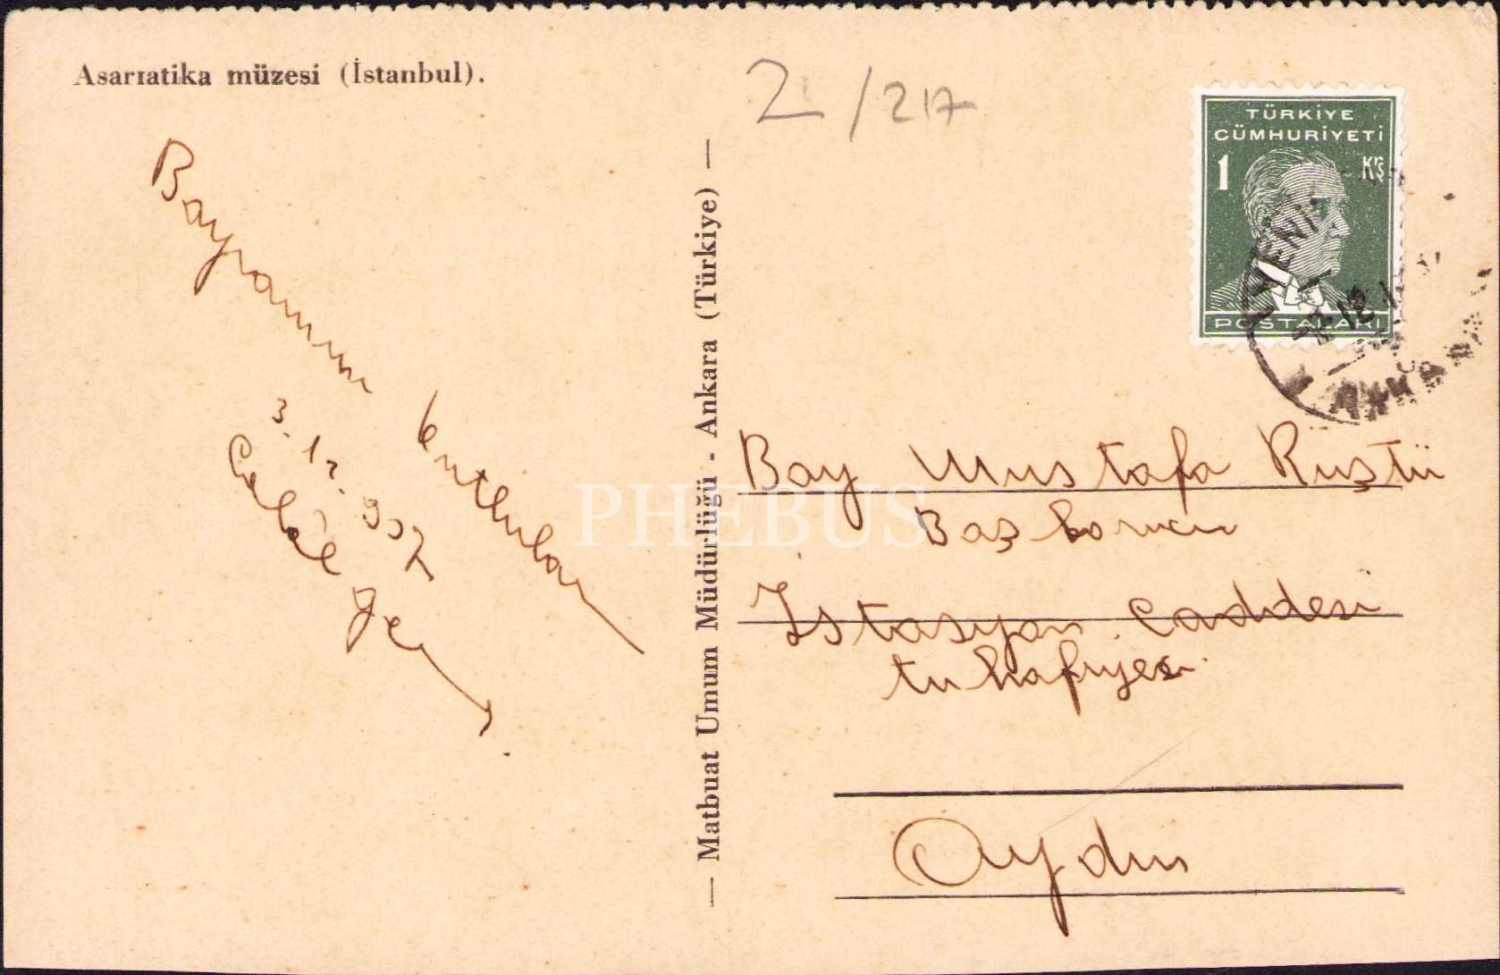 Asarıatika müzesi (İstanbul).
2/217
TÜRKİYE
CÜMHURİYETİ
1 Krş
POSTALARI
YENİ
ANKARA
Bayramın kutlular
3.12.937
Celâl
— Matbuat Umum Müdürlüğü - Ankara (Türkiye) —
PHEBUS
Bay Mustafa Rüştü
İstasyon caddesi
tuhafiyeci
Aydın